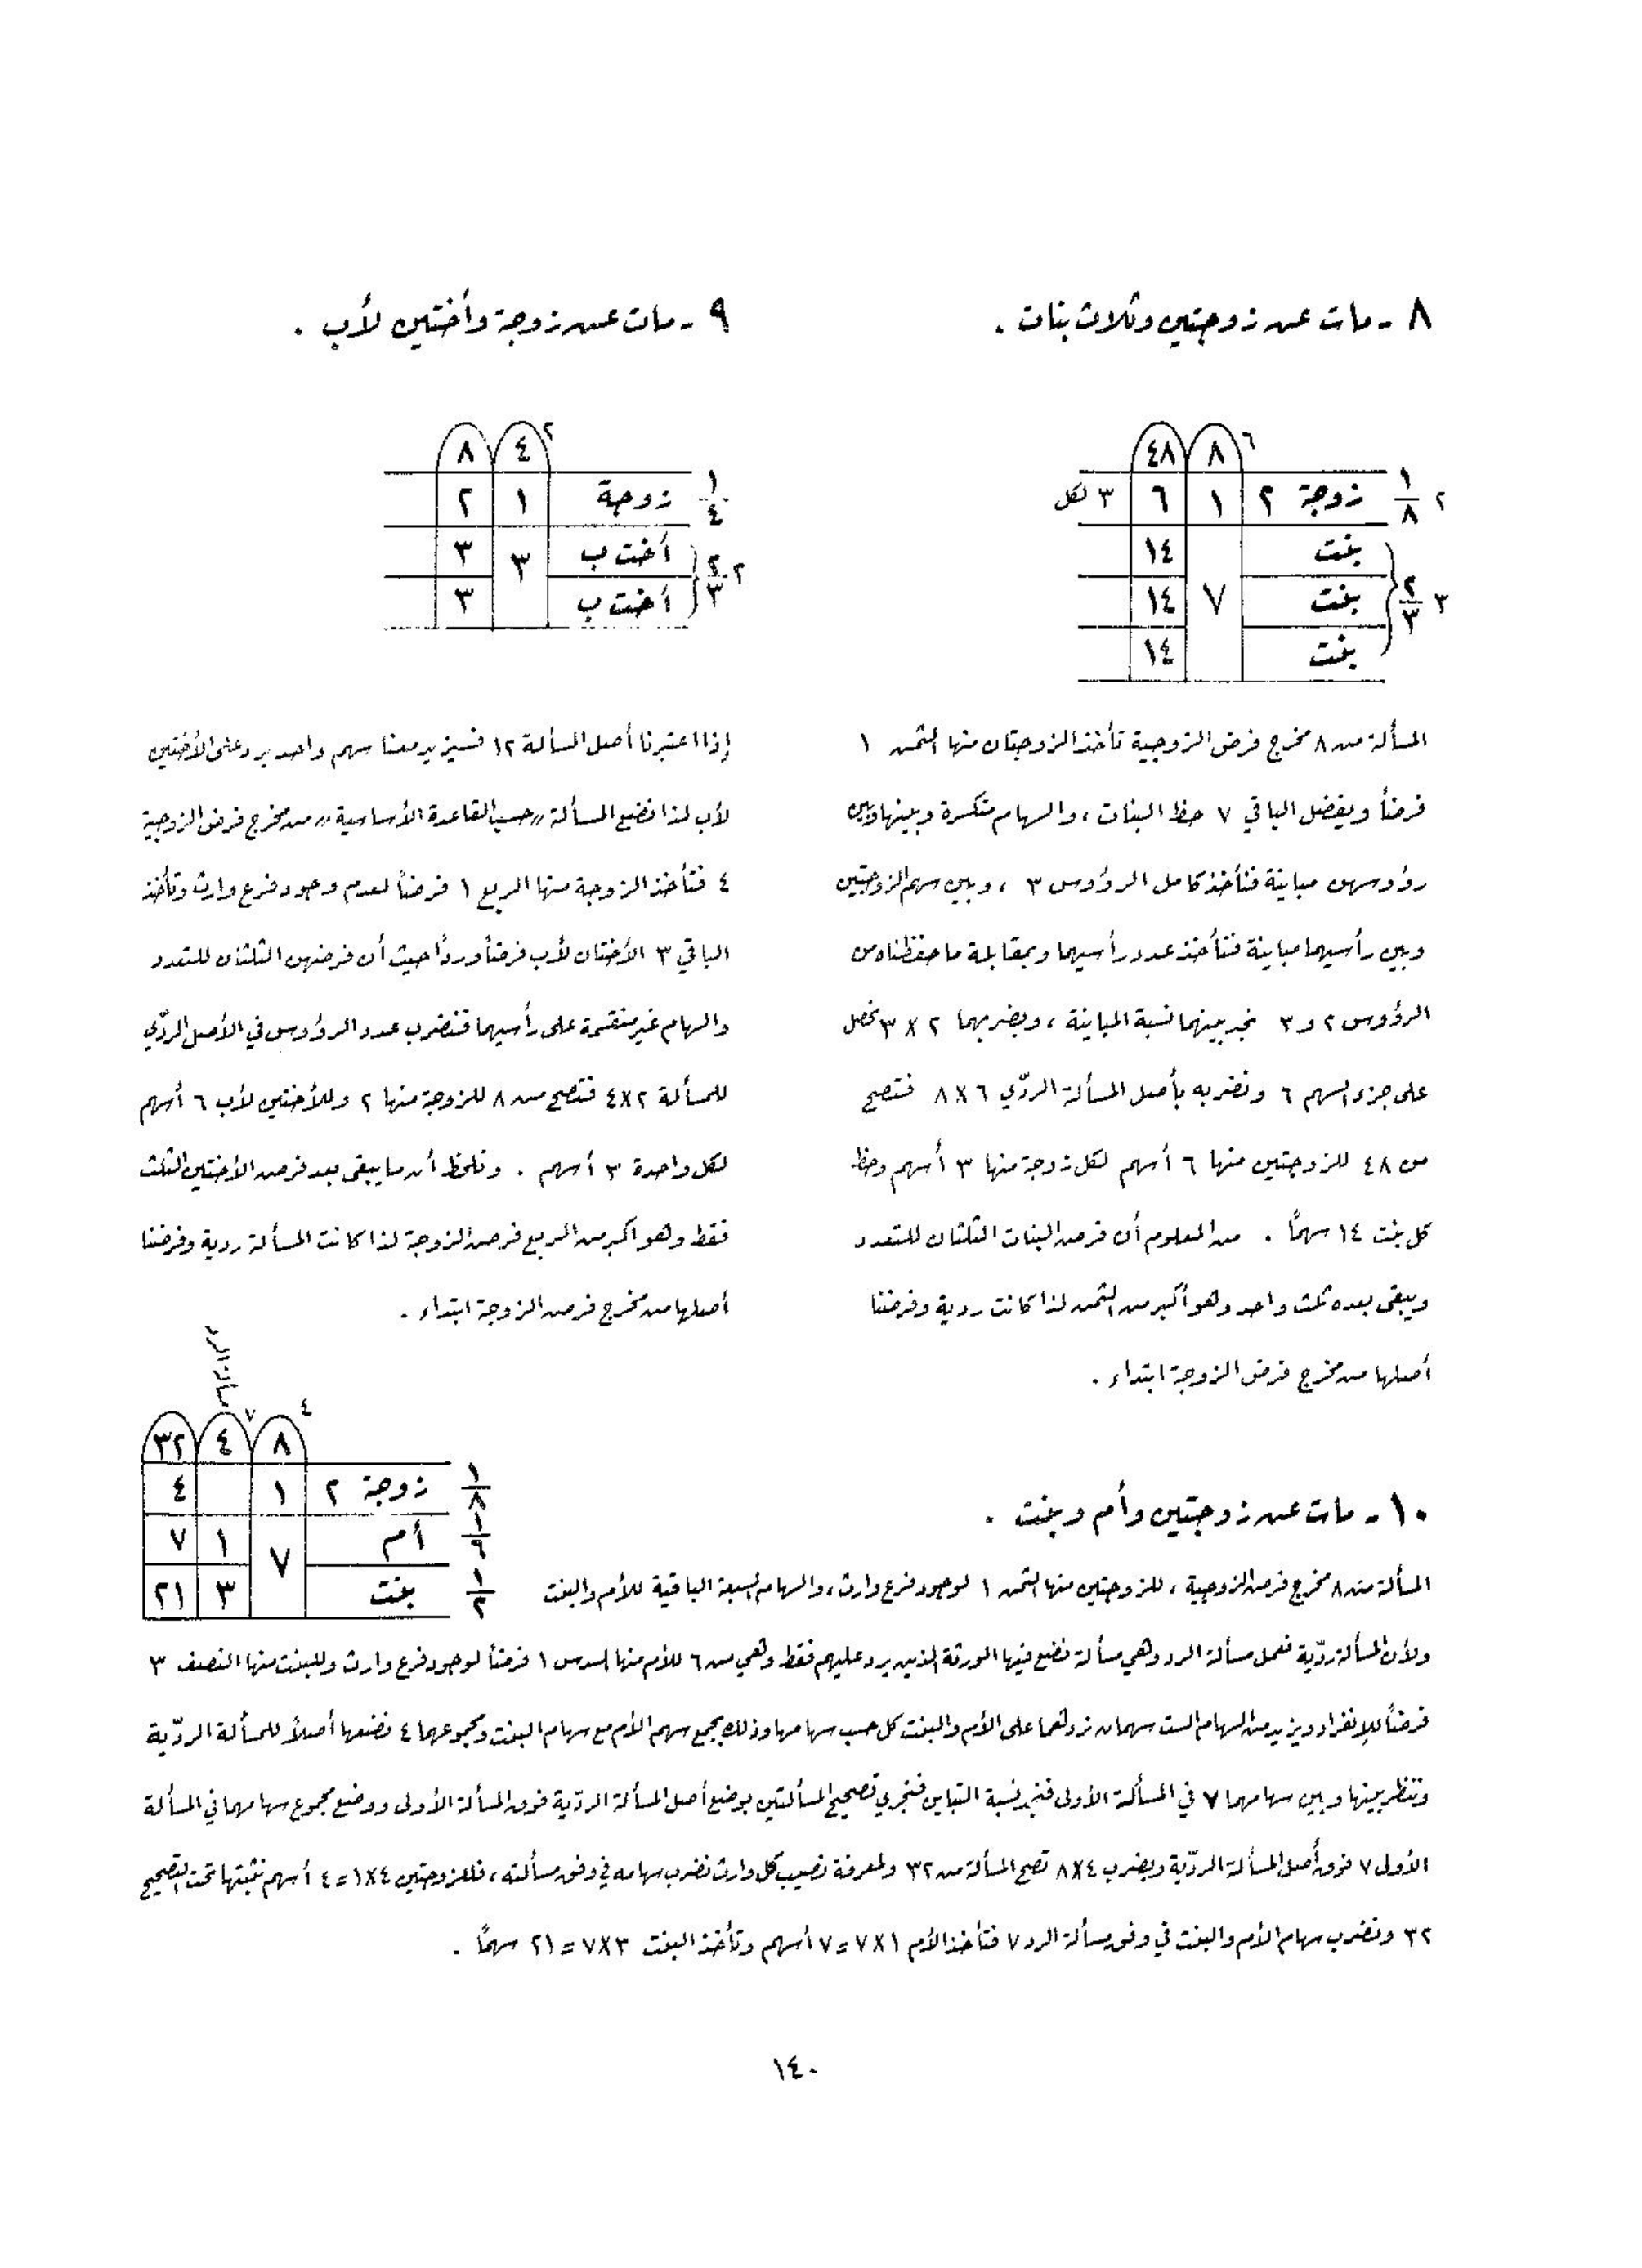 ٨ - مات عن زوجتين وثلاث بنات .
٤٨ ٨ ٦
٢ ١/٨ زوجة ٢ ١ ٦ ٣ لكل
٣ ٢/٣ بنت ١٤
بنت ٧ ١٤
بنت ١٤
المسألة من ٨ مخرج فرض الزوجية تأخذ الزوجتان منها الثمن ١
فرضاً ويفضل الباقي ٧ حظ البنات ، والسهام منكسرة وبينها وبين
رؤوسهن مباينة فنأخذ كامل الرؤوس ٣ ، وبين سهم الزوجتين
وبين رأسيهما مباينة فنأخذ عدد رأسيهما وبمقابلة ما حفظناه من
الرؤوس ٢ و ٣ نجد بينهما نسبة المباينة ، وبضربهما ٢ × ٣ نحصل
على جزء السهم ٦ ونضربه بأصل المسألة الردّي ٦ × ٨ فتصح
من ٤٨ للزوجتين منها ٦ أسهم لكل زوجة منها ٣ أسهم وحظ
كل بنت ١٤ سهماً . من المعلوم أن فرض البنات الثلثان للتعدد
ويبقى بعده ثلث واحد وهو أكبر من الثمن لذا كانت ردية وفرضنا
أصلها من مخرج فرض الزوجة ابتداء .
٩ - مات عن زوجة وأختين لأب .
٨ ٤ ٢
١/٤ زوجة ١ ٢
٢ ٢/٣ أخت ب ٣ ٣
أخت ب ٣
إذا اعتبرنا أصل المسألة ١٢ فسيزيد معنا سهم واحد يرد على الأختين
لأب لذا نضع المسألة "حسب القاعدة الأساسية" من مخرج فرض الزوجية
٤ فتأخذ الزوجة منها الربع ١ فرضاً لعدم وجود فرع وارث وتأخذ
الباقي ٣ الأختان لأب فرضاً ورداً حيث أن فرضهن الثلثان للتعدد
والسهام غير منقسمة على رأسيهما فنضرب عدد الرؤوس في الأصل الردّي
للمسألة ٢×٤ فتصح من ٨ للزوجة منها ٢ وللأختين لأب ٦ أسهم
لكل واحدة ٣ أسهم . ونلحظ أن ما يبقى بعد فرض الأختين الثلث
فقط وهو أكبر من الربع فرض الزوجة لذا كانت المسألة ردية وفرضنا
أصلها من مخرج فرض الزوجة ابتداء .
١٠ - مات عن زوجتين وأم وبنت .
مسألة الرد
٣٢ ٤ ٧ ٨ ٤
١/٨ زوجة ٢ ١ ٤
١/٦ أم ٧ ١ ٧
١/٢ بنت ٣ ٢١
المسألة من ٨ مخرج فرض الزوجية ، للزوجتين منها الثمن ١ لوجود فرع وارث ، والسهام السبعة الباقية للأم والبنت
ولأن المسألة ردّية نعمل مسألة الرد وهي مسألة نضع فيها الورثة الذين يرد عليهم فقط وهي من ٦ للأم منها السدس ١ فرضاً لوجود فرع وارث وللبنت منها النصف ٣
فرضاً للإنفراد ويزيد من السهام الست سهمان نردهما على الأم والبنت كل حسب سهامها وذلك بجمع سهم الأم مع سهام البنت ومجموعهما ٤ نضعها أصلاً للمسألة الردّية
وننظر بينها وبين سهامهما ٧ في المسألة الأولى فنجد نسبة التباين فنجري تصحيح المسألتين بوضع أصل المسألة الردّية فوق المسألة الأولى ووضع مجموع سهامهما في المسألة
الأولى ٧ فوق أصل المسألة الردّية وبضرب ٤×٨ تصح المسألة من ٣٢ ولمعرفة نصيب كل وارث نضرب سهامه في وفق مسألته ، فللزوجتين ٤×١=٤ أسهم نثبتها تحت التصحيح
٣٢ ونضرب سهام الأم والبنت في وفق مسألة الرد ٧ فتأخذ الأم ١×٧=٧ أسهم وتأخذ البنت ٣×٧=٢١ سهماً .
١٤٠